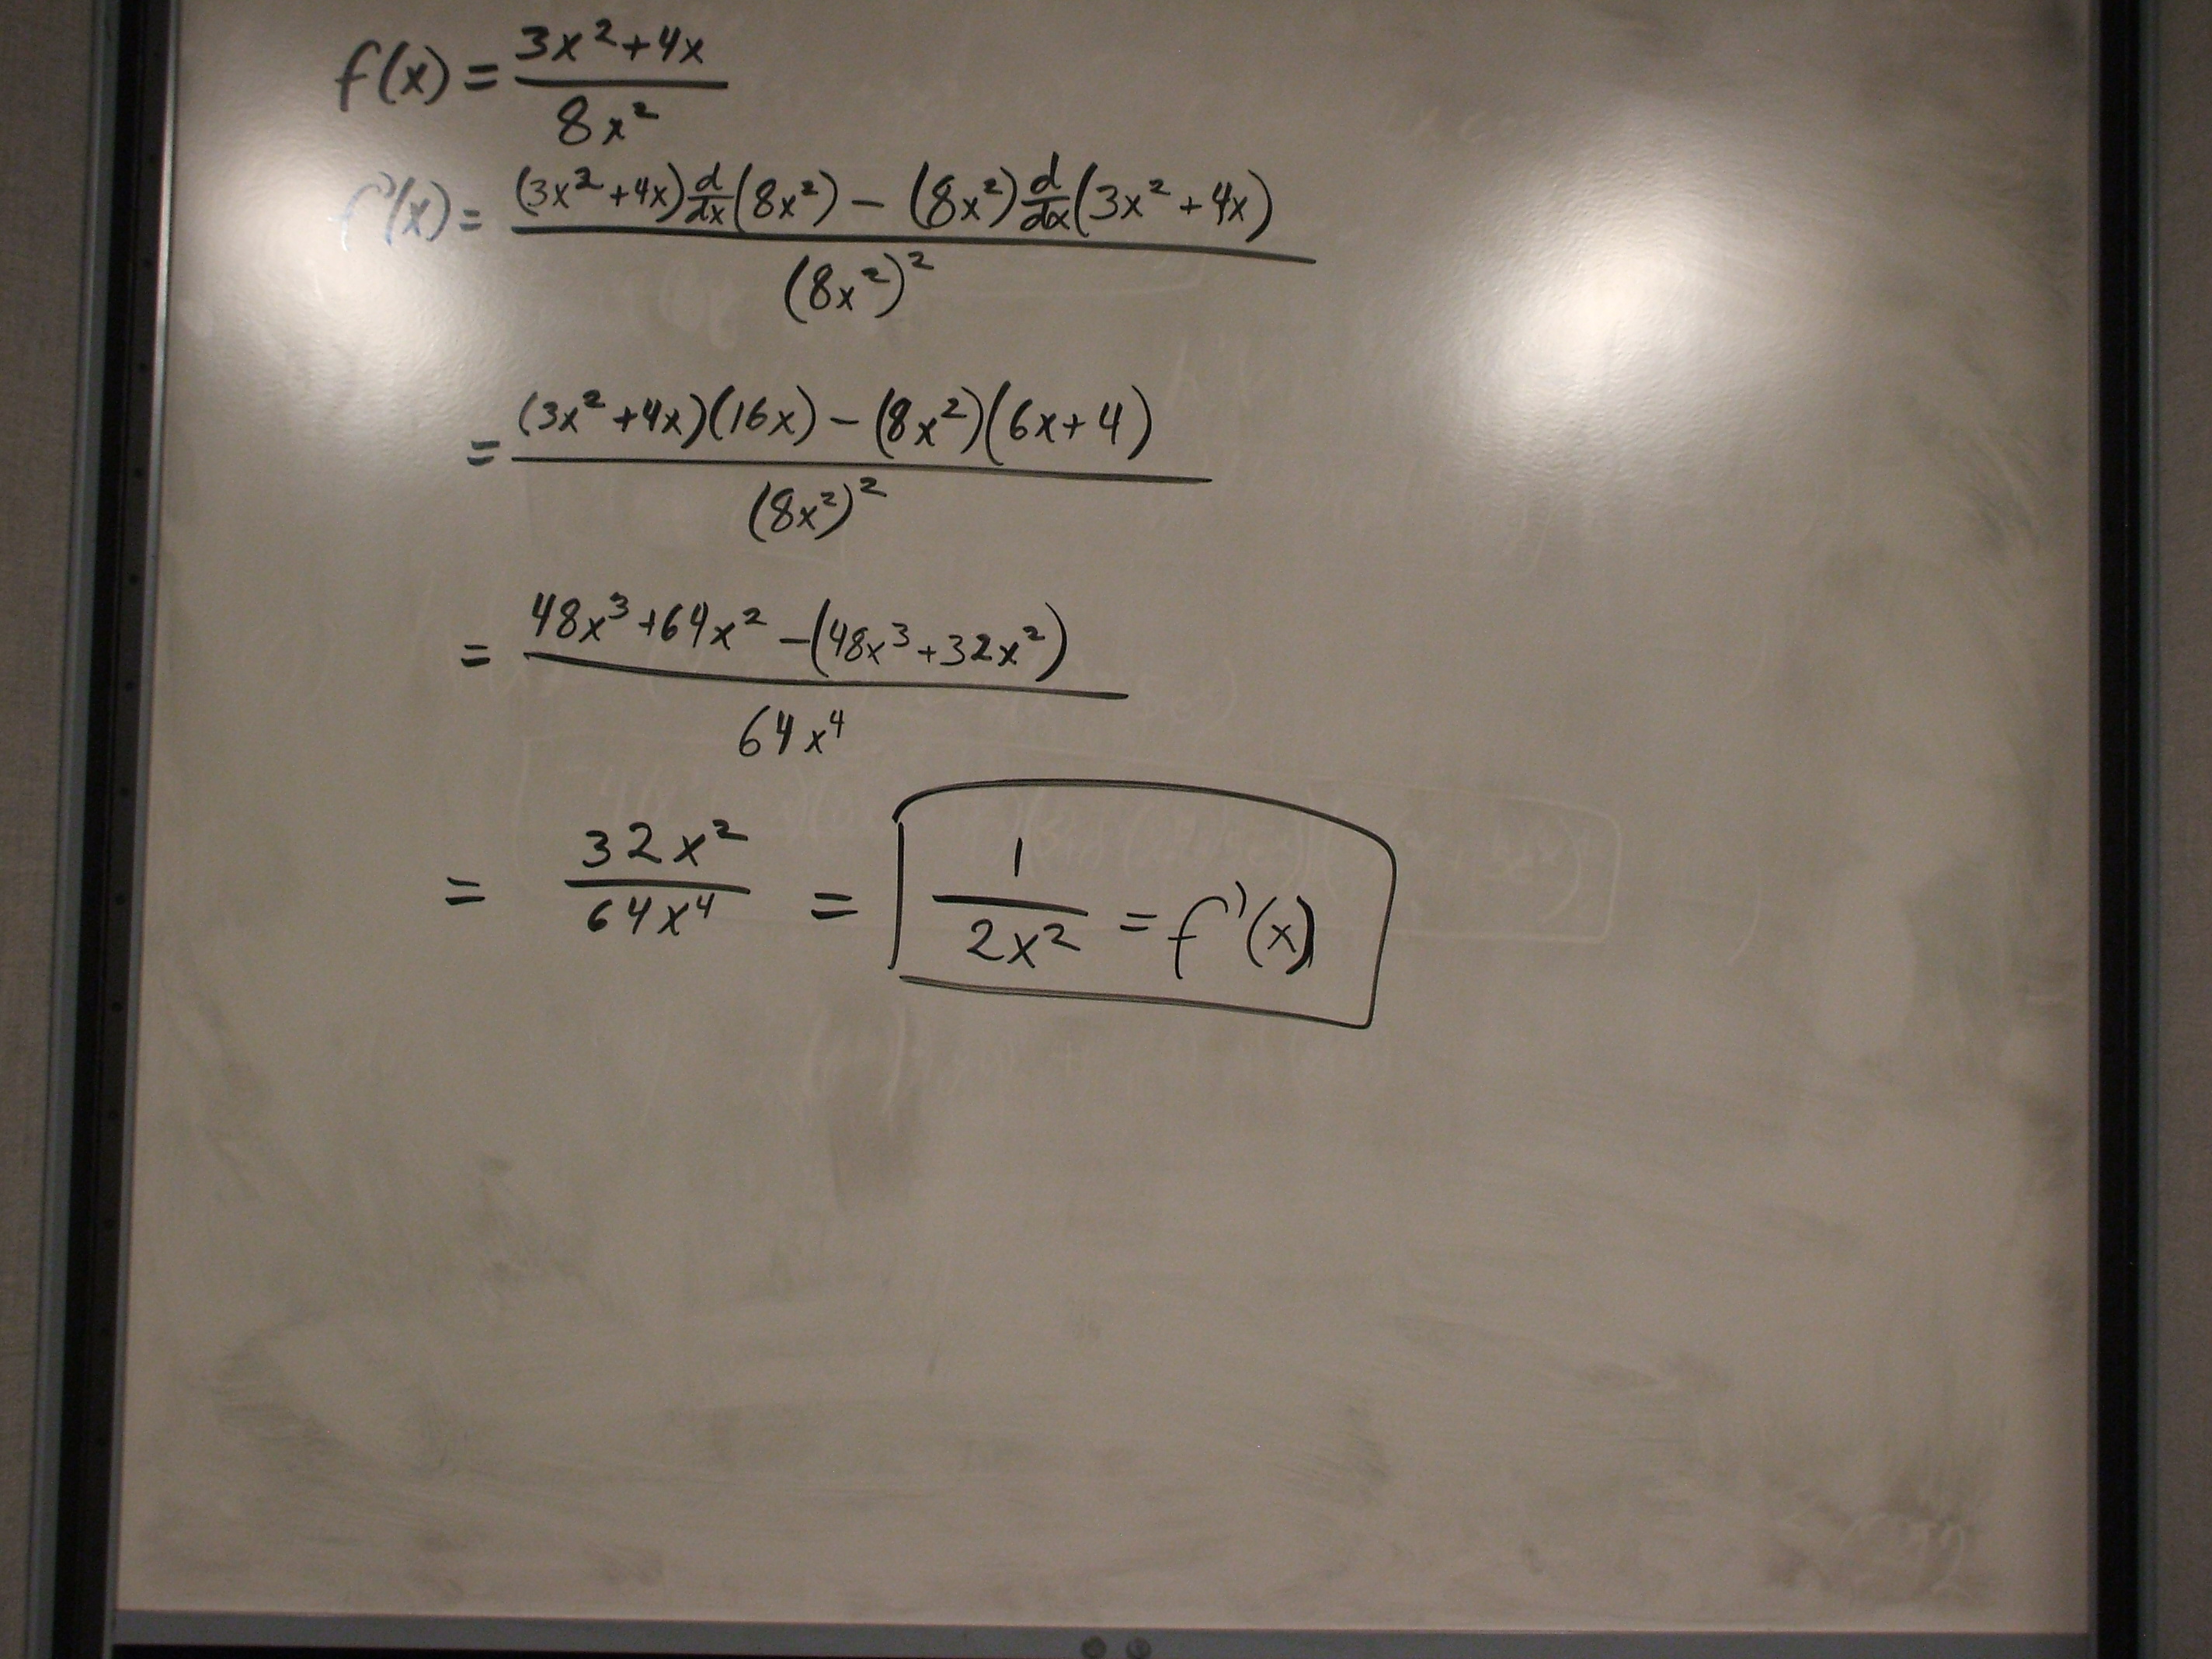 f(x) = (3x² + 4x) / (8x²)
f'(x) = ((3x² + 4x) d/dx (8x²) − (8x²) d/dx (3x² + 4x)) / (8x²)²
= ((3x² + 4x)(16x) − (8x²)(6x + 4)) / (8x²)²
= (48x³ + 64x² − (48x³ + 32x²)) / 64x⁴
= 32x² / 64x⁴ = 1 / 2x² = f'(x)